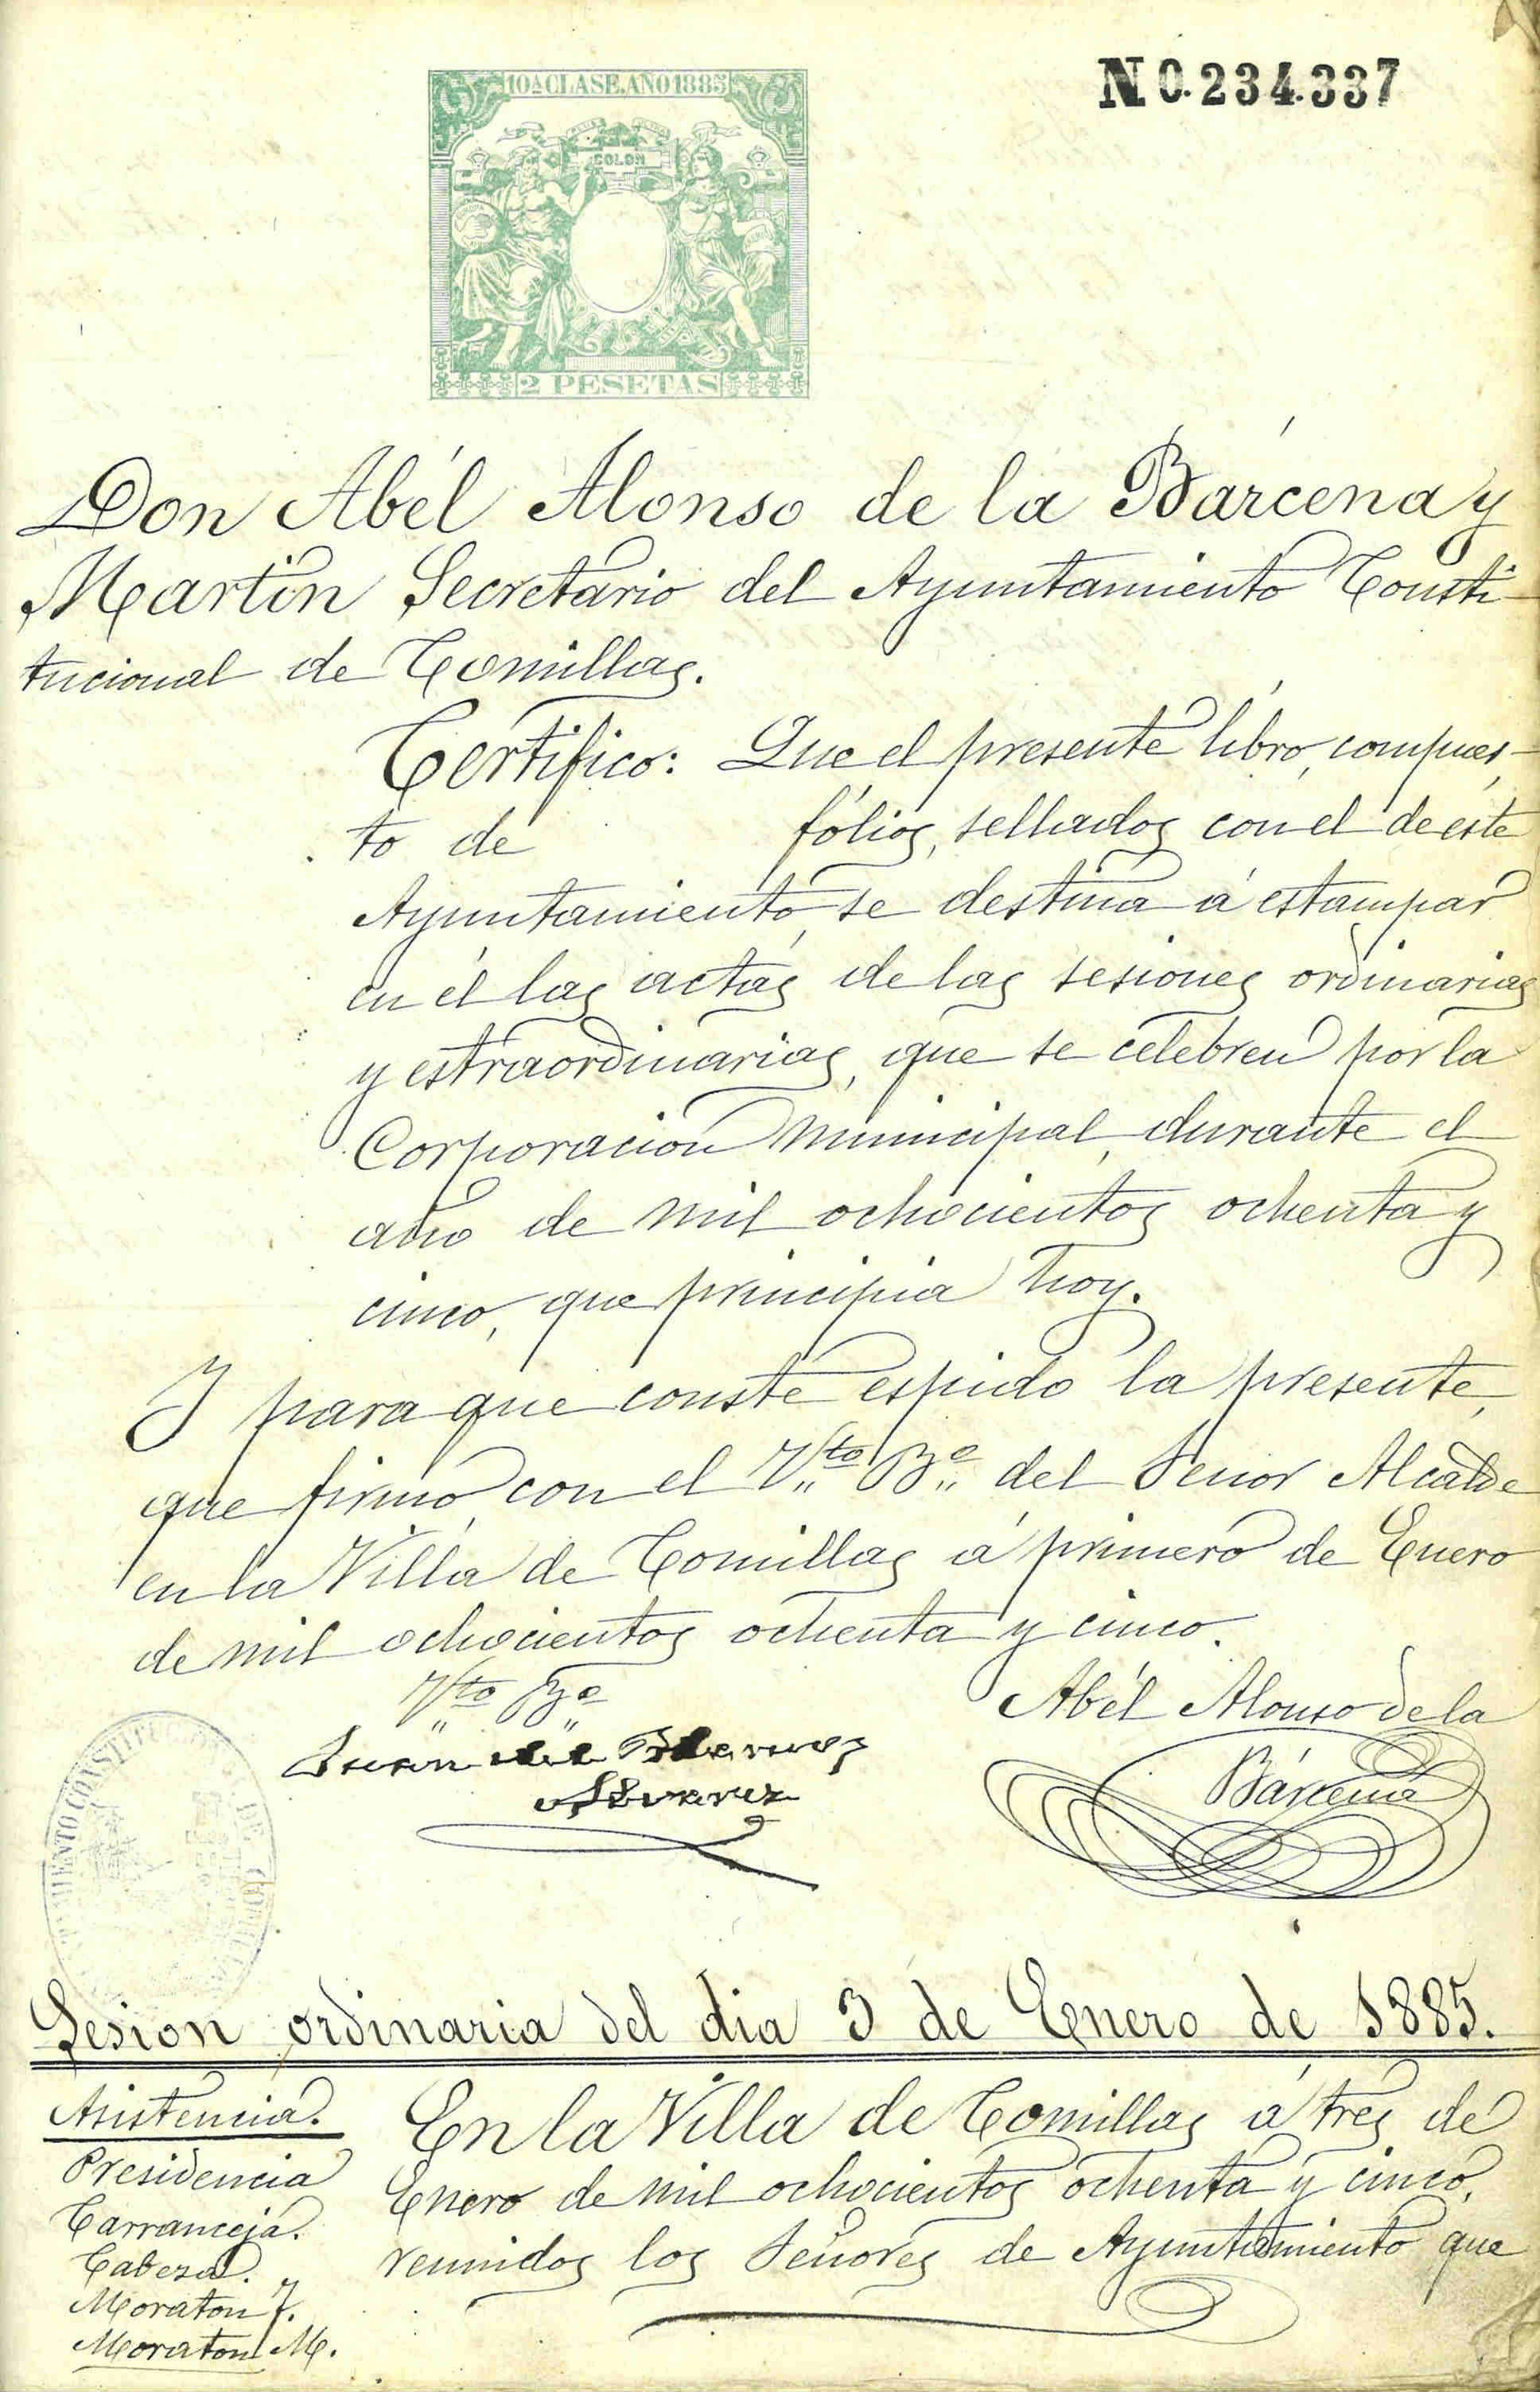 10ª CLASE. AÑO 1885
N 0.234.337
COLON
2 PESETAS
Don Abél Alonso de la Bárcena y
Martin Secretario del Ayuntamiento Consti-
tucional de Comillas.
Certifico: Que el presente libro, compues-
to de fólios, sellados con el de este
Ayuntamiento, se destina á estampar
en él las actas de las sesiones ordinarias
y estraordinarias, que se celebren por la
Corporacion municipal, durante el
año de mil ochocientos ochenta y
cinco, que principia hoy.
Y para que conste espido la presente,
que firmo, con el V.to B.o del Señor Alcalde
en la Villa de Comillas á primero de Enero
de mil ochocientos ochenta y cinco.
Vto Bo
Abél Alonso de la
Juan del
Bárcena
AYUNTAMIENTO CONSTITUCIONAL DE COMILLAS
Sesion ordinaria del dia 3 de Enero de 1885.
Asistencia.
En la Villa de Comillas á tres de
Presidencia
Enero de mil ochocientos ochenta y cinco,
Carranceja.
reunidos los Señores de Ayuntamiento que
Cabeza.
Moraton J.
Moraton M.